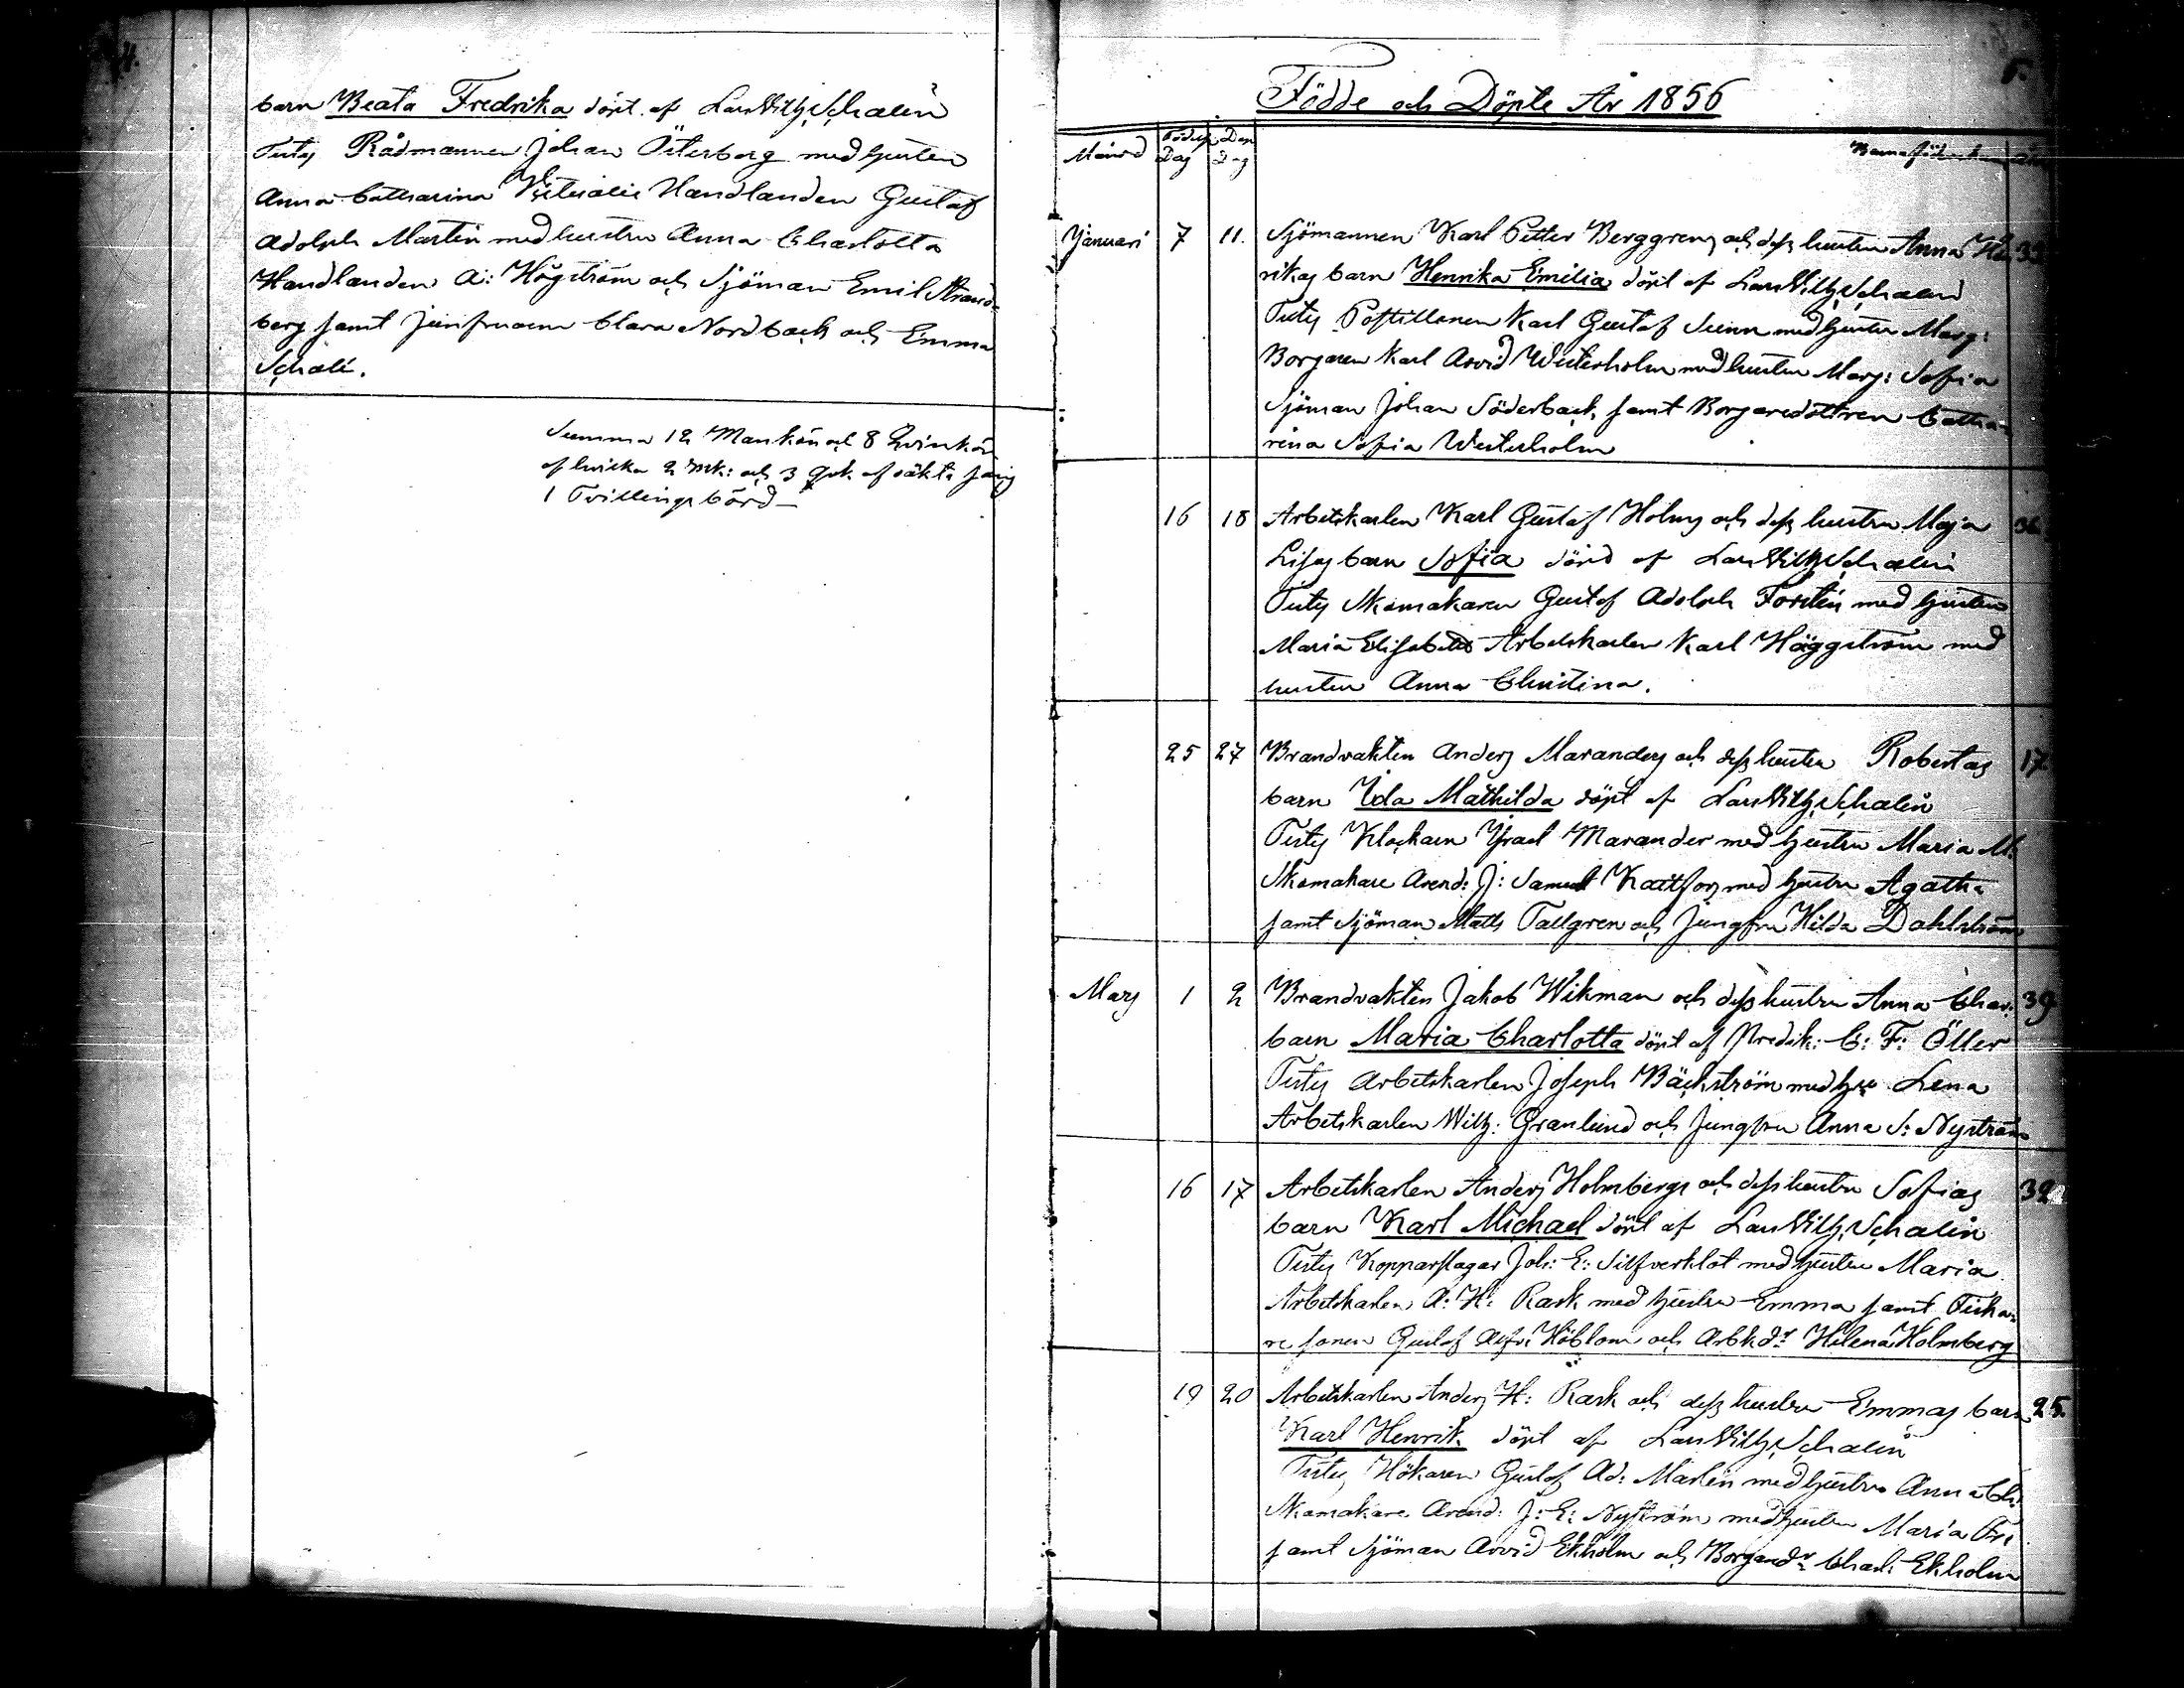 4.
barn Beata Fredrika döpt. af Lars Vilh. Schalin
Test: Rådmannen Johan Österberg med hustru
Anna Catharina Handlanden Gustaf
Adolph Martin med hustru Anna Charlotta
Handlanden A: Högström och Sjöman Emil Strand-
berg samt Jungfrurna Clara Nordback och Emma
Schali.
Summa 12 Mankön och 8 Qvinkön
af hvilka 2 mk: och 3 qvk. af oäkta säng
1 Tvillingsbörd –
5.
Födde och Döpte År 1856
Månad Födelse Dag Dop Dag
Januari 7 11. Sjömannen Karl Petter Berggrens och dess hustru Anna Hen 32
rikas barn Henrika Emilia döpt af Lars Vilh. Schalin
Test: Postillonen Karl Gustaf med hustru Marg:
Borgaren Karl Arvid Westerholm med hustru Marg: Sofia
Sjöman Johan Söderback, samt Borgaredottren Catha-
rina Sofia Westerholm
16 18 Arbetskarlen Karl Gustaf Holms och dess hustru Maja 36
Lisas barn Sofia döpt af Lars Vilh. Schalin
Test: Skomakaren Gustaf Adolph Forstén med hustru
Maria Elisabeth Arbetskarlen Karl Häggström med
hustru Anna Christina.
25 27 Brandvakten Anders Maranders och dess hustru Robertas 17.
barn Ida Mathilda döpt af Lars Vilh. Schalin
Test: Klockaren Israel Marander med hustru Maria M.
Skomakare Arend: J: Samuel Kattfors med hustru Agatha
samt Sjöman Matts Tallgren och Jungfru Hilda Dahlström
Mars 1 2 Brandvakten Jakob Wikman och dess hustru Anna Char: 39
barn Maria Charlotta döpt af Predik: C: F: Öller
Test: Arbetskarlen Joseph Bäckström med hu Lena
Arbetskarlen Wilh: Granlund och Jungfru Anna S: Nyström
16 17 Arbetskarlen Anders Holmbergs och dess hustru Sofias 32
barn Karl Michael döpt af Lars Vilh. Schalin
Test: Kopparslagar Joh: E: Silfverklot med hustru Maria
Arbetskarlen A: H: Rask med hustru Emma samt Fiska-
re sonen Gustaf Alfr. Höblom och Arbk dr Helena Holmberg
19 20 Arbetskarlen Anders H: Rask och dess hustru Emmas barn 25.
Karl Henrik döpt af Lars Vilh. Schalin
Test: Hökaren Gustaf Ad: Martin med hustru Anna Ch.
Skomakare Arend: J: E: Nyström med hustru Maria Fr:
samt Sjöman Arvid Ekholm och Borgaredr Charl: Ekholm